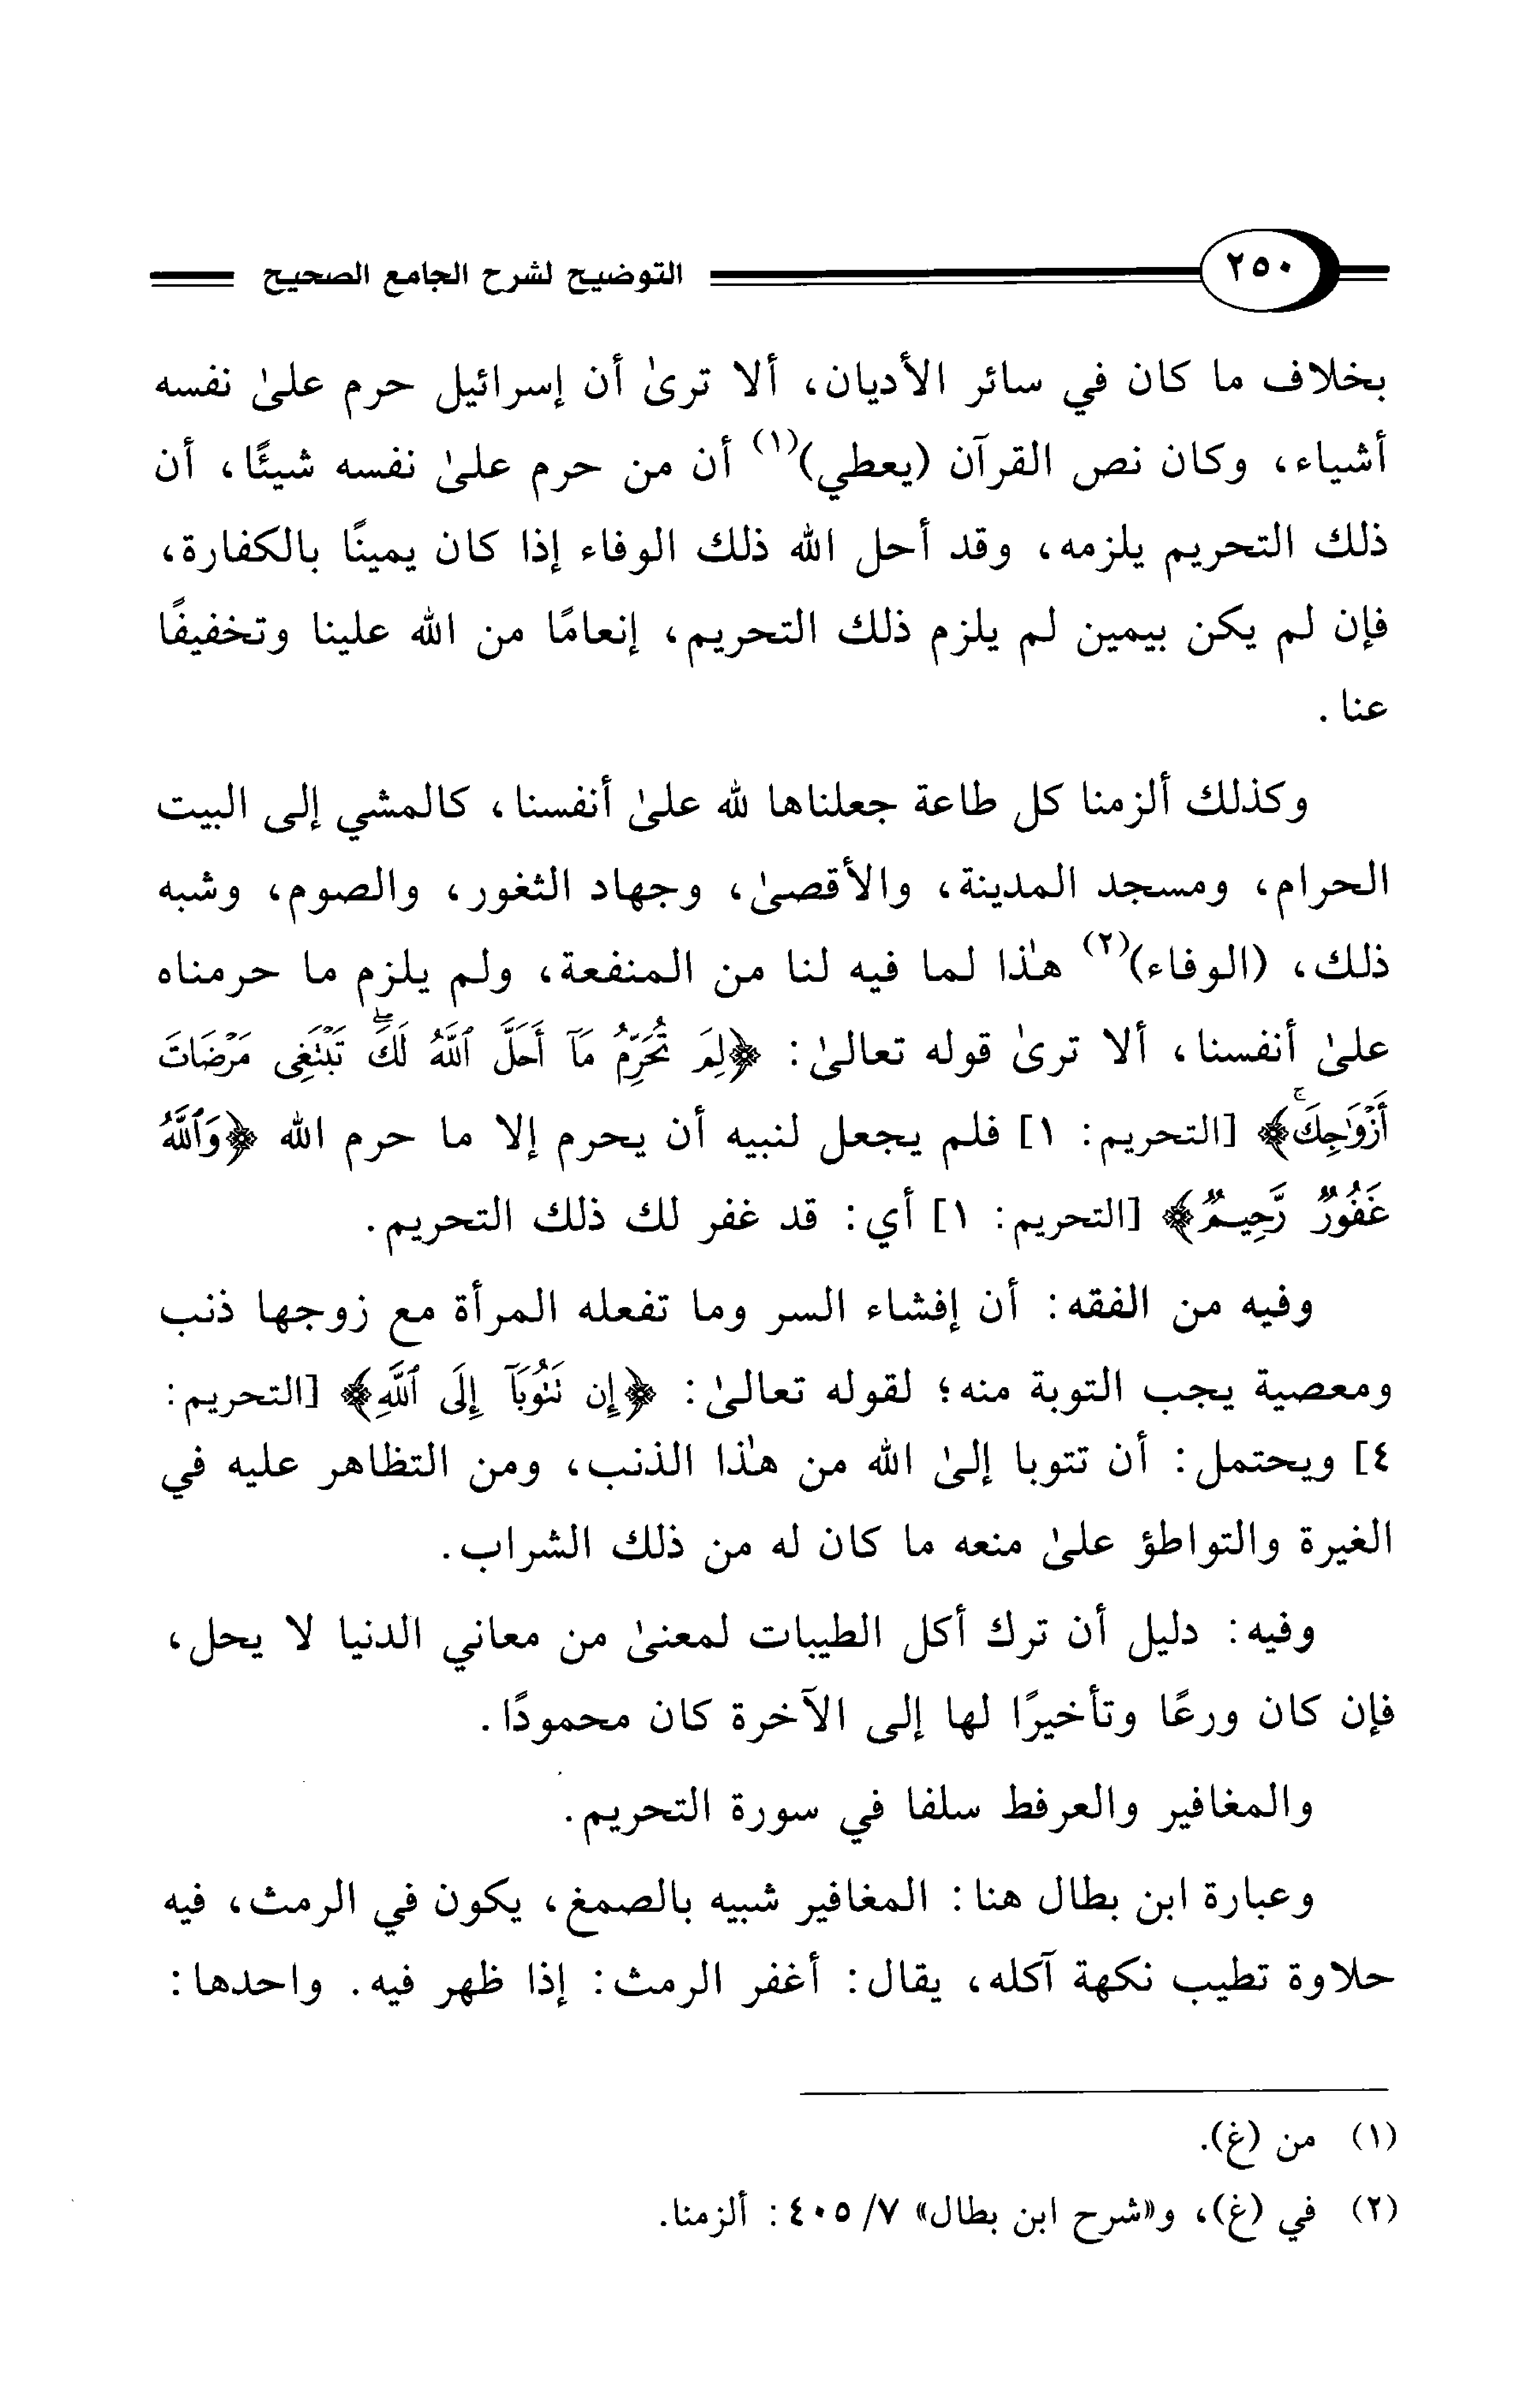 ٢٥٠ التوضيح لشرح الجامع الصحيح
بخلاف ما كان في سائر الأديان، ألا ترىٰ أن إسرائيل حرم علىٰ نفسه
أشياء، وكان نص القرآن (يعطي)(١) أن من حرم علىٰ نفسه شيئًا، أن
ذلك التحريم يلزمه، وقد أحل الله ذلك الوفاء إذا كان يمينًا بالكفارة،
فإن لم يكن بيمين لم يلزم ذلك التحريم، إنعامًا من الله علينا وتخفيفًا
عنا.
وكذلك ألزمنا كل طاعة جعلناها لله علىٰ أنفسنا، كالمشي إلى البيت
الحرام، ومسجد المدينة، والأقصىٰ، وجهاد الثغور، والصوم، وشبه
ذلك، (الوفاء)(٢) هٰذا لما فيه لنا من المنفعة، ولم يلزم ما حرمناه
علىٰ أنفسنا، ألا ترىٰ قوله تعالىٰ: ﴿لِمَ تُحَرِّمُ مَآ أَحَلَّ ٱللَّهُ لَكَۖ تَبۡتَغِي مَرۡضَاتَ
أَزۡوَٰجِكَۚ﴾ [التحريم: ١] فلم يجعل لنبيه أن يحرم إلا ما حرم الله ﴿وَٱللَّهُ
غَفُورٞ رَّحِيمٞ﴾ [التحريم: ١] أي: قد غفر لك ذلك التحريم.
وفيه من الفقه: أن إفشاء السر وما تفعله المرأة مع زوجها ذنب
ومعصية يجب التوبة منه؛ لقوله تعالىٰ: ﴿إِن تَتُوبَآ إِلَى ٱللَّهِ﴾ [التحريم:
٤] ويحتمل: أن تتوبا إلىٰ الله من هٰذا الذنب، ومن التظاهر عليه في
الغيرة والتواطؤ علىٰ منعه ما كان له من ذلك الشراب.
وفيه: دليل أن ترك أكل الطيبات لمعنىٰ من معاني الدنيا لا يحل،
فإن كان ورعًا وتأخيرًا لها إلى الآخرة كان محمودًا.
والمغافير والعرفط سلفا في سورة التحريم.
وعبارة ابن بطال هنا: المغافير شبيه بالصمغ، يكون في الرمث، فيه
حلاوة تطيب نكهة آكله، يقال: أغفر الرمث: إذا ظهر فيه. واحدها:
(١) من (غ).
(٢) في (غ)، و«شرح ابن بطال» ٧/ ٤٠٥: ألزمنا.